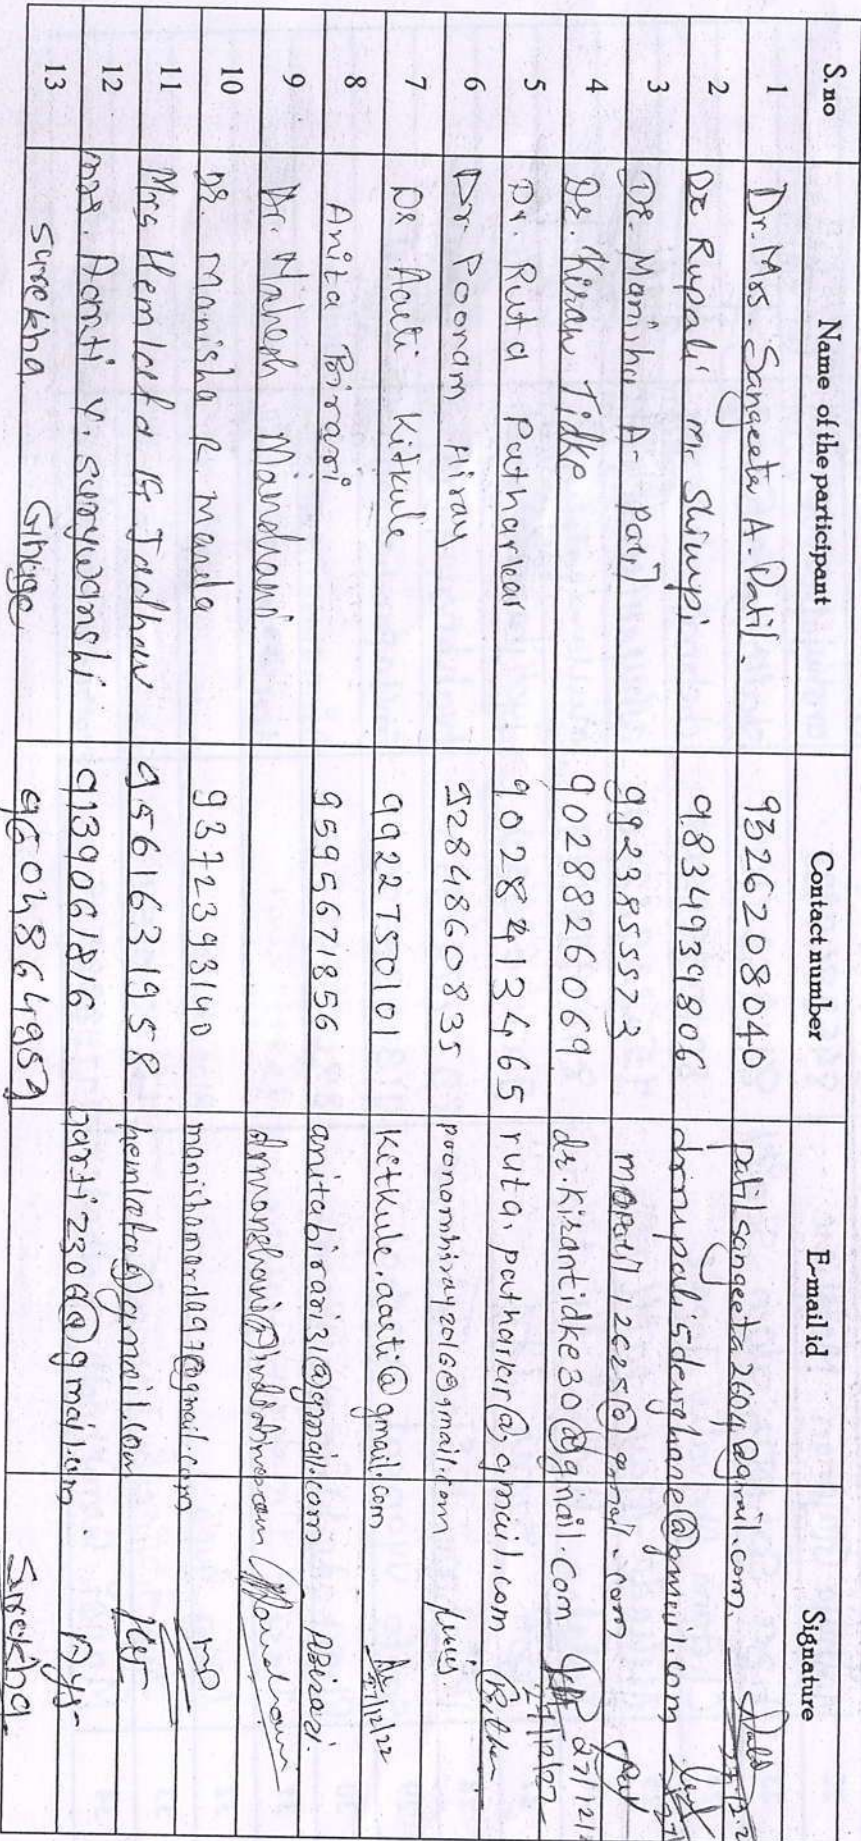 S.no Name of the participant Contact number E-mail id Signature
1 Dr. Mrs. Sangeeta A. Patil. 9326208040 patilsangeeta2604@gmail.com
2 Dr Rupali M. Shimpi 9834939806 drrupali5devghare@gmail.com
3 Dr. Manisha A. Patil 9923855573
4 Dr. Kiran Tidke 9028826069 dr.kirantidke30@gmail.com 27/12/2
5 Dr. Ruta Patharkar 9028413465 ruta.patharkar@gmail.com
6 Dr. Poonam Hiray 9284860835 poonamhiray2016@gmail.com
7 Dr Aarti Kitkule 9922750101 kitkule.aarti@gmail.com 27/12/22
8 Anita Birari 9595671856 anitabirari31@gmail.com ABirari.
9 Dr. Mahesh Mandhani
10 Dr. Manisha R Marda 9372393140 manishamarda97@gmail.com
11 Mrs Hemlata G Jadhav 9561631958 hemlata@gmail.com
12 Mrs Aarti Y. Suryawanshi 9139061816 aarti230d@gmail.com.
13 Surekha Ghuge 9604864959 Surekha.